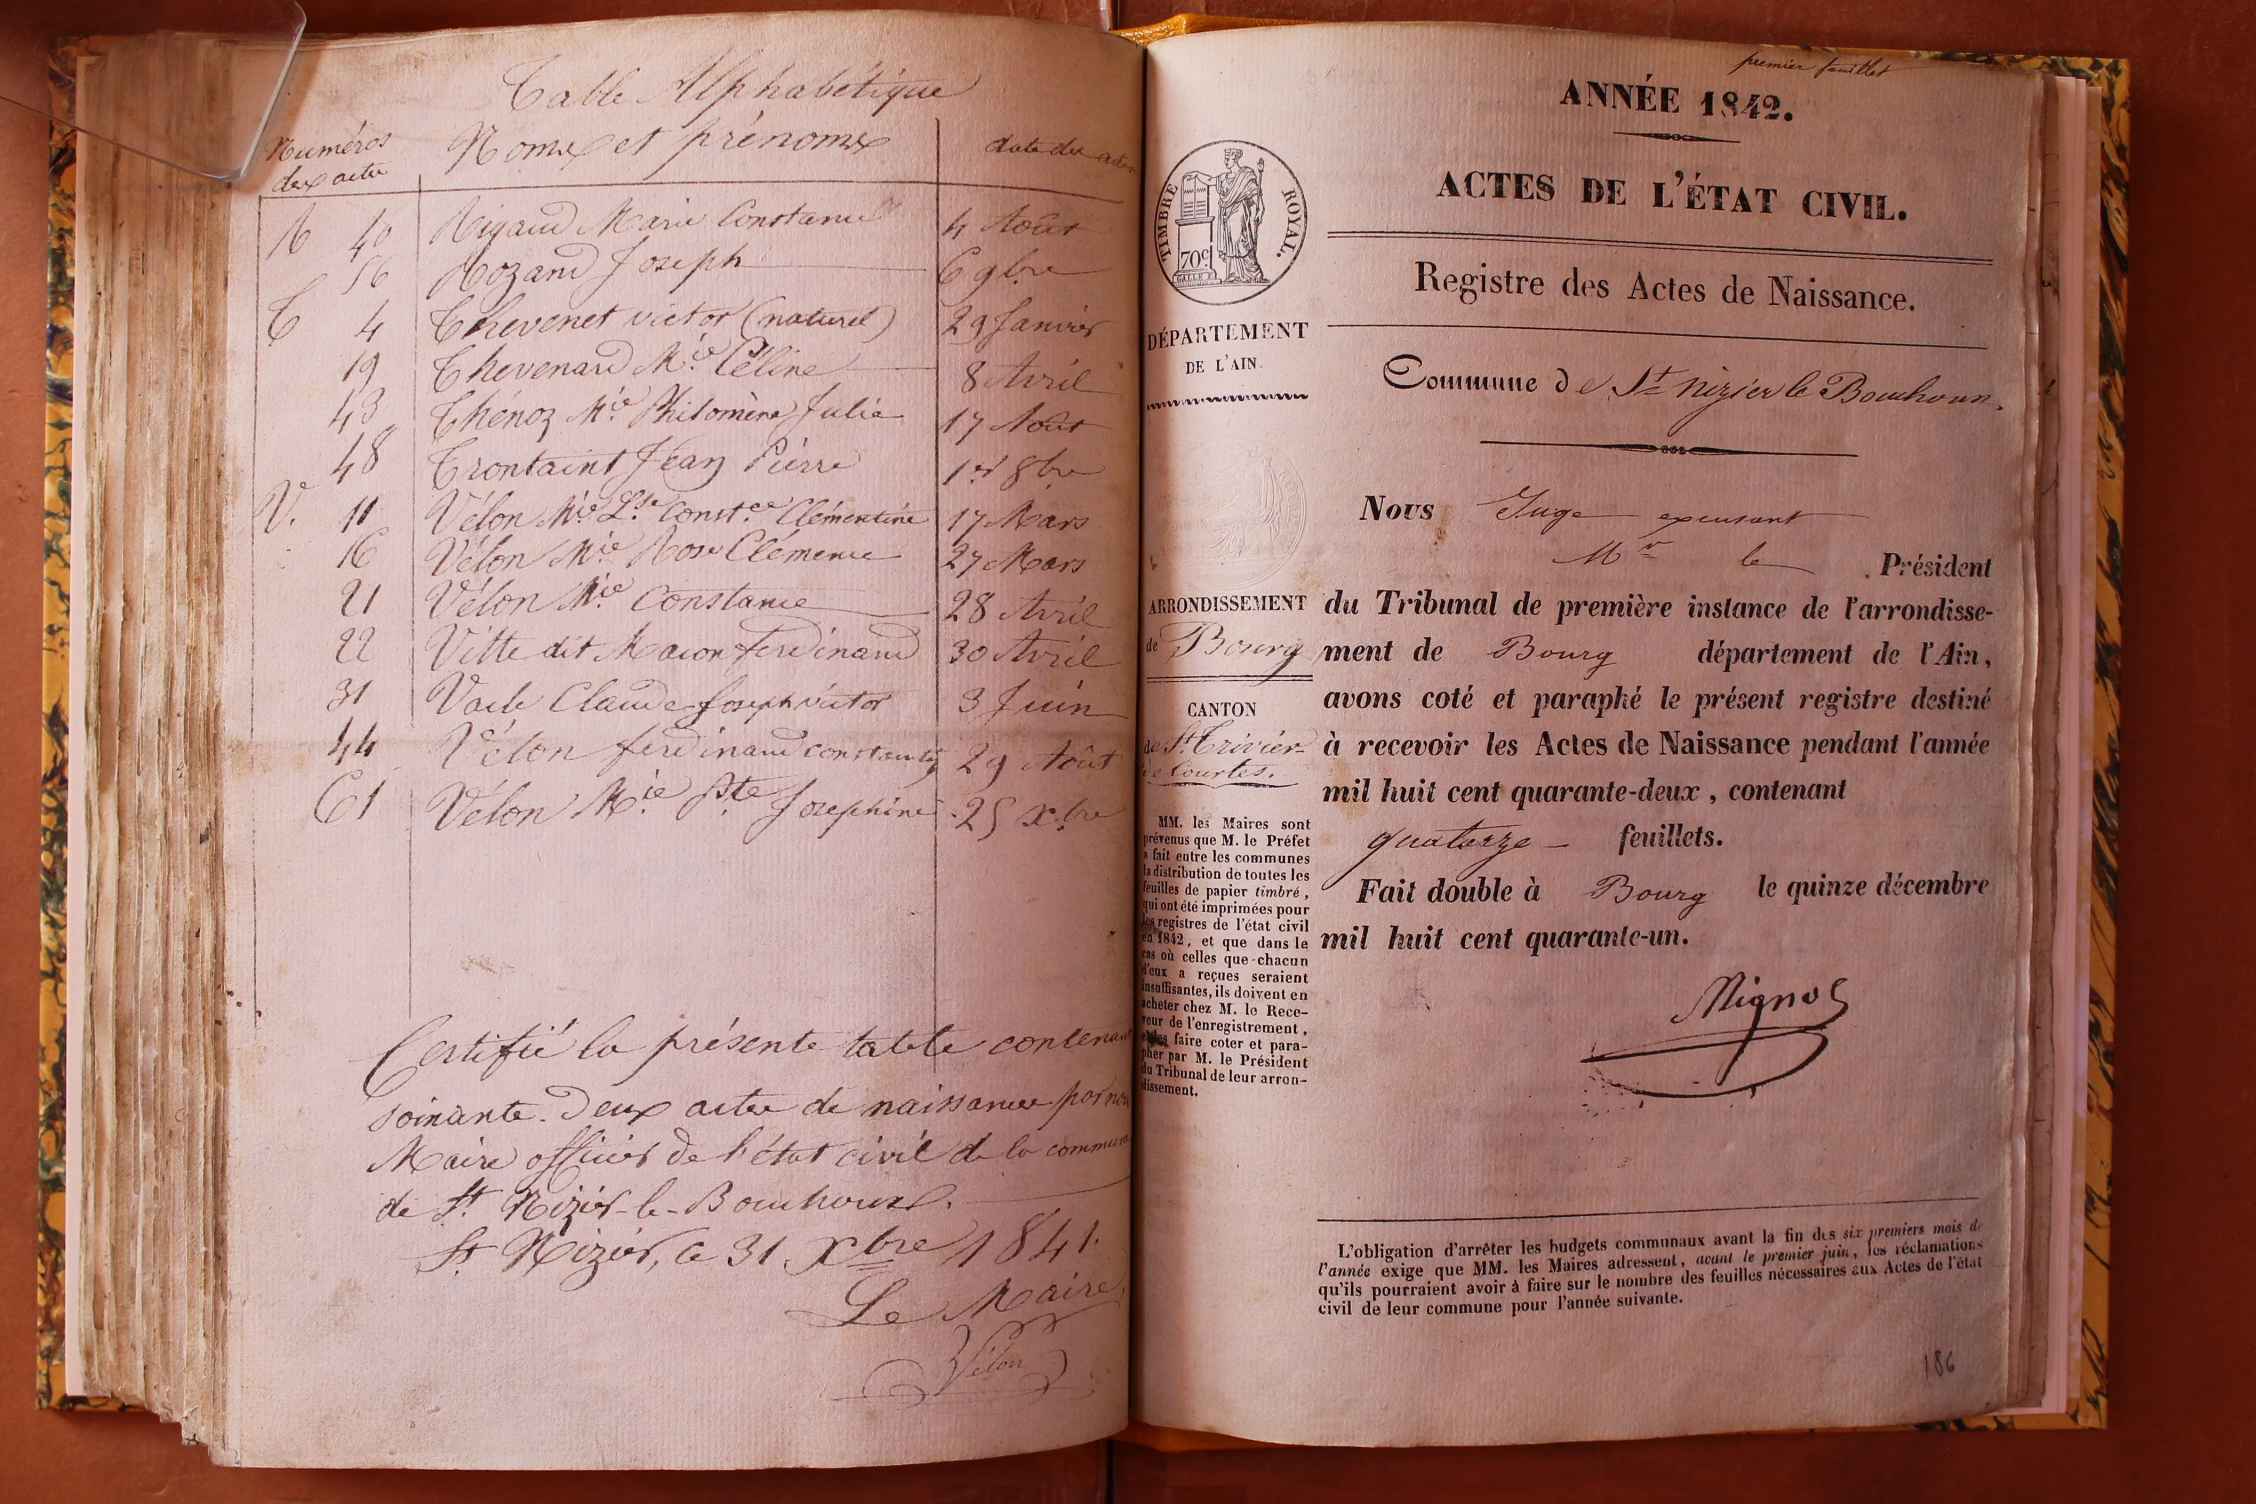 Table Alphabétique
Numéros des actes
Noms et prénoms
date des actes
R 40 Rigaud Marie Constance 4 Août
56 Rozand Joseph 6 9bre
T 4 Thevenet victor (naturel) 29 Janvier
19 Thevenard Mie Céline 8 Avril
43 Thénoz Mie Philomène Julie 17 Août
48 Trontaint Jean Pierre 1er 8bre
V. 11 Vélon Mie Lse Constce Clémentine 17 Mars
16 Vélon Mie Rose Clémence 27 Mars
21 Vélon Mie Constance 28 Avril
22 Vitte dit Macon ferdinand 30 Avril
31 Vacle Claude Joseph victor 3 Juin
44 Vélon ferdinand constantin 29 Août
61 Vélon Mie Pte Josephine 25 xbre
Certifié la présente table contenant
soixante-deux actes de naissances par nous
Maire officier de l'état civil de la commune
de St Nizier-le-Bouchoux.
St Nizier, le 31 Xbre 1841.
Le Maire,
Vélon
premier feuillet
ANNÉE 1842.
ACTES DE L'ÉTAT CIVIL.
TIMBRE ROYAL.
70c
Registre des Actes de Naissance.
DÉPARTEMENT
DE L'AIN.
Commune de St Nizier le Bouchoux.
Nous Juge excusant
Mr le Président
ARRONDISSEMENT
de Bourg
CANTON
de St Trivier
de Courtes.
du Tribunal de première instance de l'arrondisse-
ment de Bourg département de l'Ain,
avons coté et paraphé le présent registre destiné
à recevoir les Actes de Naissance pendant l'année
mil huit cent quarante-deux, contenant
quatorze feuillets.
Fait double à Bourg le quinze décembre
mil huit cent quarante-un.
Mignot
MM. les Maires sont
prévenus que M. le Préfet
a fait entre les communes
la distribution de toutes les
feuilles de papier timbré,
qui ont été imprimées pour
les registres de l'état civil
en 1842, et que dans le
cas où celles que chacun
d'eux a reçues seraient
insuffisantes, ils doivent en
acheter chez M. le Rece-
veur de l'enregistrement,
et les faire coter et para-
pher par M. le Président
du Tribunal de leur arron-
dissement.
L'obligation d'arrêter les budgets communaux avant la fin des six premiers mois de
l'année exige que MM. les Maires adressent, avant le premier juin, les réclamations
qu'ils pourraient avoir à faire sur le nombre des feuilles nécessaires aux Actes de l'état
civil de leur commune pour l'année suivante.
186